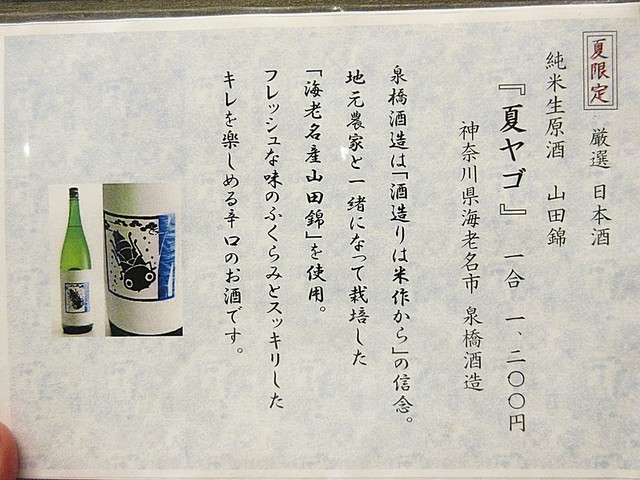 夏限定
厳選 日本酒
純米生原酒 山田錦
『夏ヤゴ』 一合 一、二〇〇円
神奈川県海老名市 泉橋酒造
泉橋酒造は「酒造りは米作から」の信念。
地元農家と一緒になって栽培した
「海老名産山田錦」を使用。
フレッシュな味のふくらみとスッキリした
キレを楽しめる辛口のお酒です。